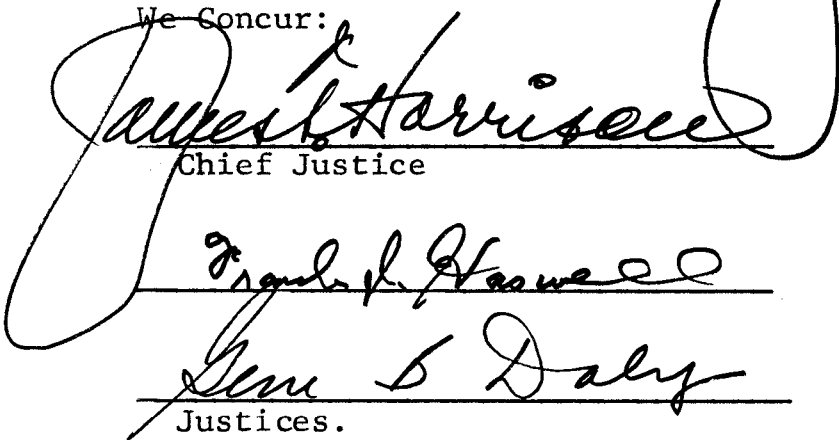 We Concur:
James T. Harrison
Chief Justice
Frank I. Haswell
Gene B Daly
Justices.